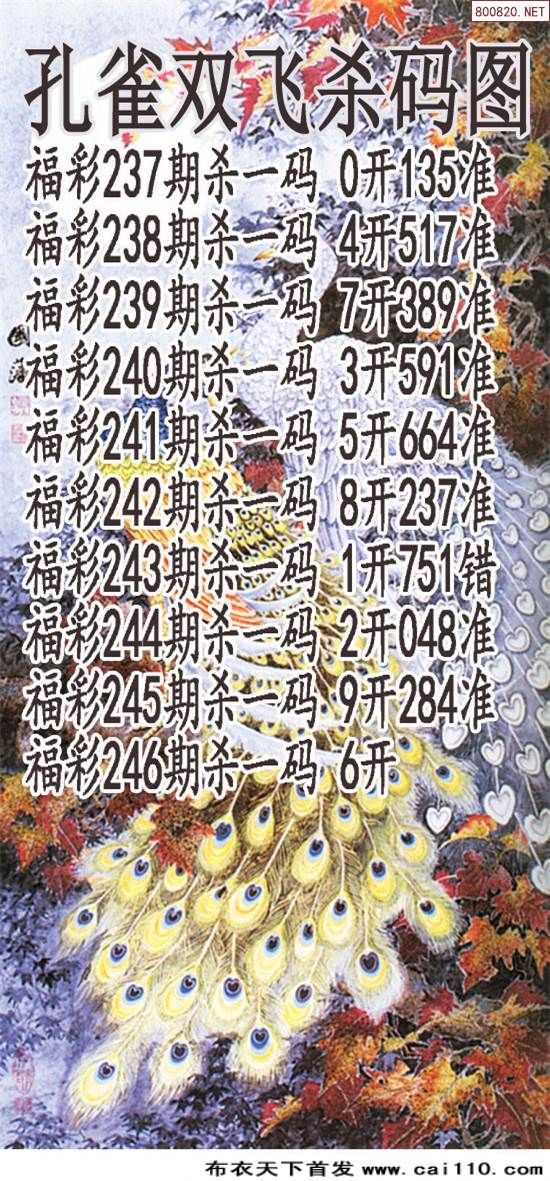 800820.NET
孔雀双飞杀码图
福彩237期杀一码 0开135准
福彩238期杀一码 4开517准
福彩239期杀一码 7开389准
福彩240期杀一码 3开591准
福彩241期杀一码 5开664准
福彩242期杀一码 8开237准
福彩243期杀一码 1开751错
福彩244期杀一码 2开048准
福彩245期杀一码 9开284准
福彩246期杀一码 6开
布衣天下首发 www.cai110.com